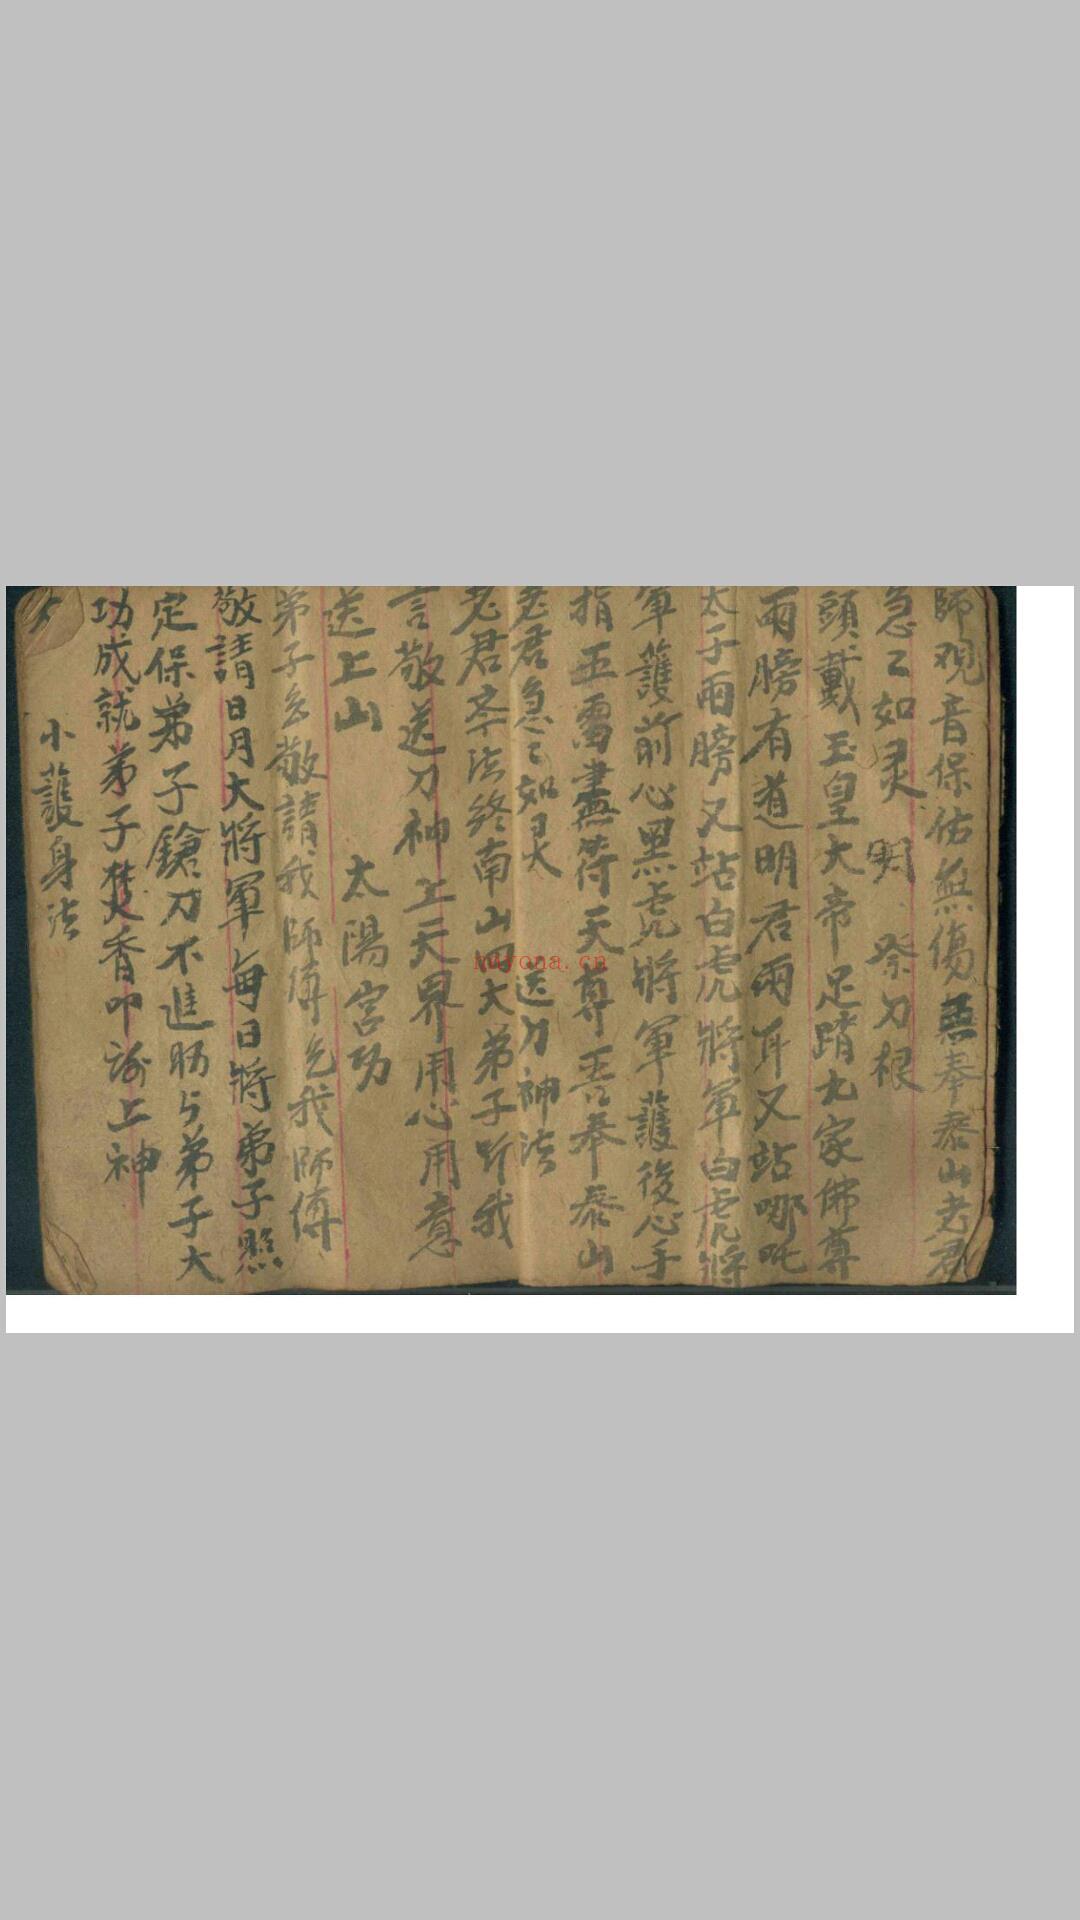 師观音保佑無傷吾奉泰山老君
急〻如灵　明　祭刀根
頭戴玉皇大帝足踏九家佛尊
兩膀有道明君兩耳又站哪吒
太子兩膀又站白虎將軍白虎將
軍護前心黑虎將軍護後心手
指五雷書符天尊吾奉泰山
老君急〻如灵　送刀神法
老君奉法終南山四大弟子听我
言敬送刀神上天界用心用意
送上山　太陽宫功
弟子敬請我師傅我師傅
敬請日月大將軍每日將弟子照
定保弟子鎗刀不進与弟子大
功成就弟子焚香叩謝上神
小護身法
huyona.cn